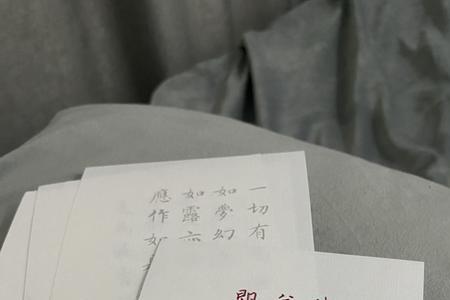 一切有
如夢幻
如露亦
應作如